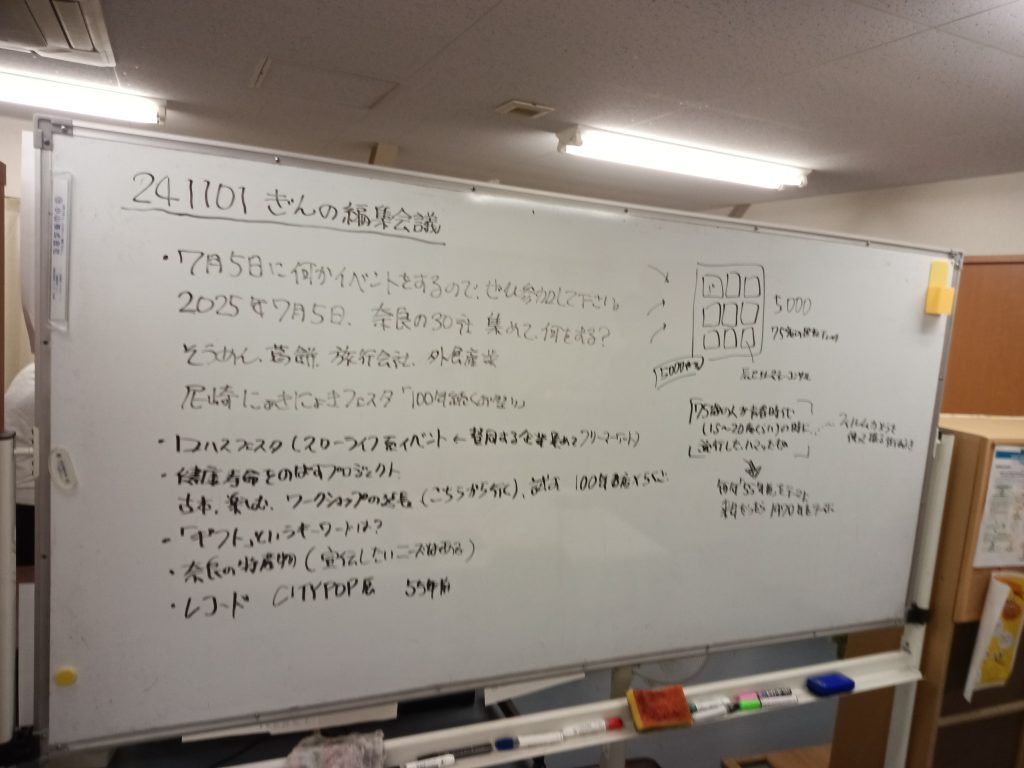 241101 ぎんの編集会議
・7月5日に何かイベントをするので、ぜひ参加して下さい。
2025年7月5日、奈良の30社 集めて、何をする?
そうめん、葛餅、旅行会社、外食産業
尼崎 にょきにょきフェスタ「100年続くお祭り」
・ロハスフェスタ (スローライフ系イベント ← 賛同する企業集めてフリーマーケット)
・健康寿命をのばすプロジェクト
古本、楽しむ、ワークショップの延長 (こちらから行く)、 100年
・「ギフト」というキーワードは?
・奈良の特産物 (宣伝したいニーズはある)
・レコード CITYPOP展 55年前
5000
75歳の
5000
「75歳の人が青春時代
(15〜20歳くらい)の時に
流行した、ハマったもの
毎年'55年前をテーマ
1970年